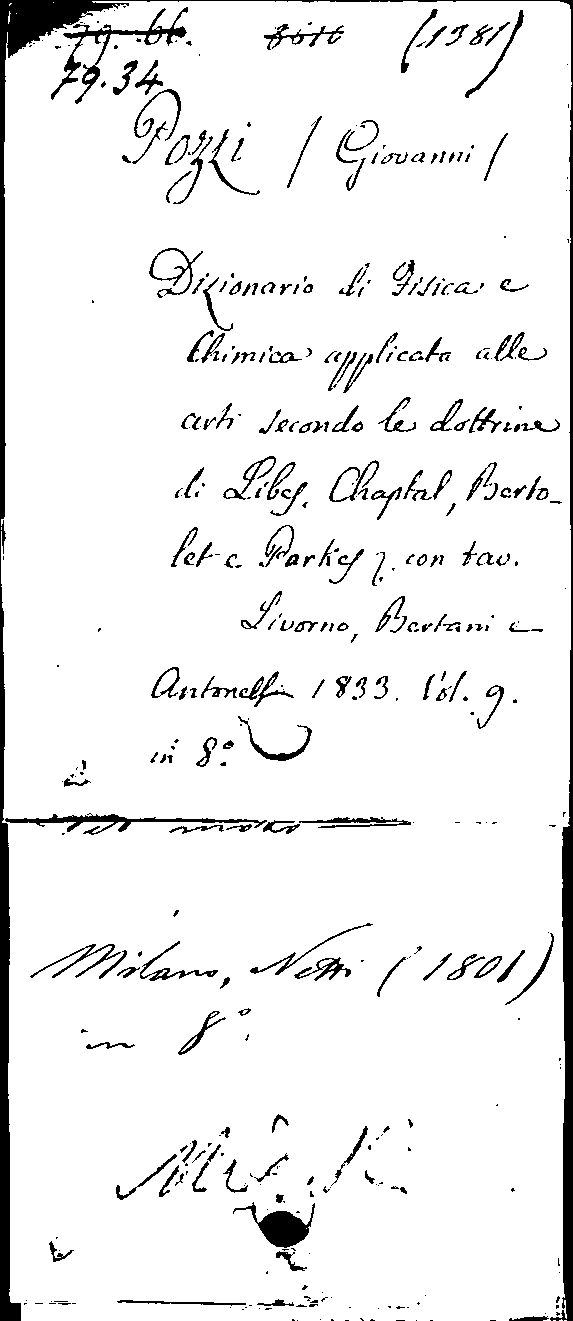 79. 66. (1381)
79.34
Pozzi / Giovanni /
Dizionario di Fisica e
Chimica applicata alle
arti secondo le dottrine
di Libes, Chaptal, Berto-
let e Parkes con tav.
Livorno, Bertani e
Antonelli 1833. Vol. 9.
in 8.°
Milano, Netti (1801)
in 8°.